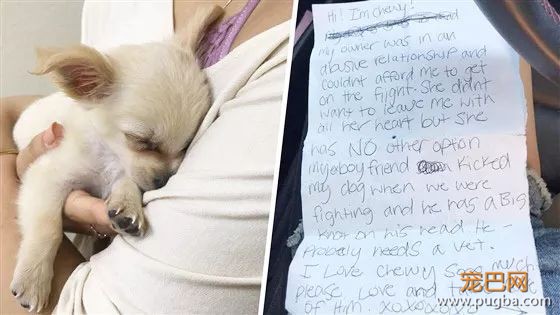 Hi! I'm chewy!
my owner was in an
abusive relationship and
couldnt afford me to get
on the flight. She didnt
want to leave me with
all her heart but she
has NO other option
my boyfriend kicked
my dog when we were
fighting and he has a Big
knot on his head. He
Probely needs a vet.
I Love chewy sooo much
please Love and
of Him. xoxoxo
宠巴网
www.pugba.com